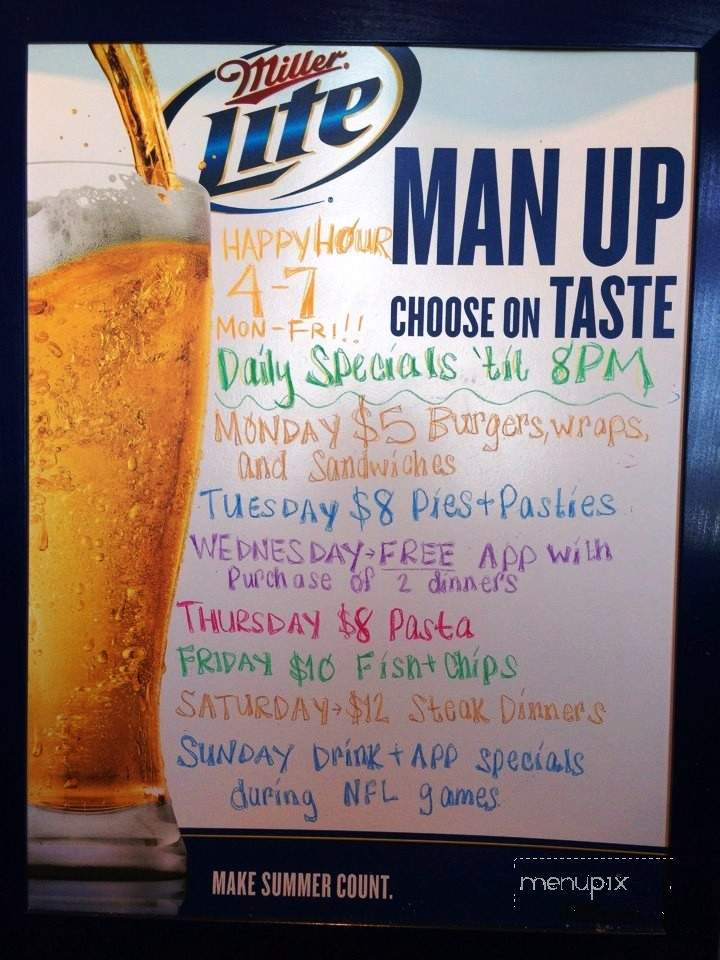 Miller
Lite
MAN UP
CHOOSE ON TASTE
HAPPY HOUR
4-7
MON-FRI!!
Daily Specials 'til 8PM
MONDAY $5 Burgers, wraps,
and Sandwiches
TUESDAY $8 Pies + Pasties
WEDNESDAY→FREE App with
Purchase of 2 dinners
THURSDAY $8 Pasta
FRIDAY $10 Fish + Chips
SATURDAY→$12 Steak Dinners
SUNDAY Drink + App specials
during NFL games.
MAKE SUMMER COUNT.
menupix